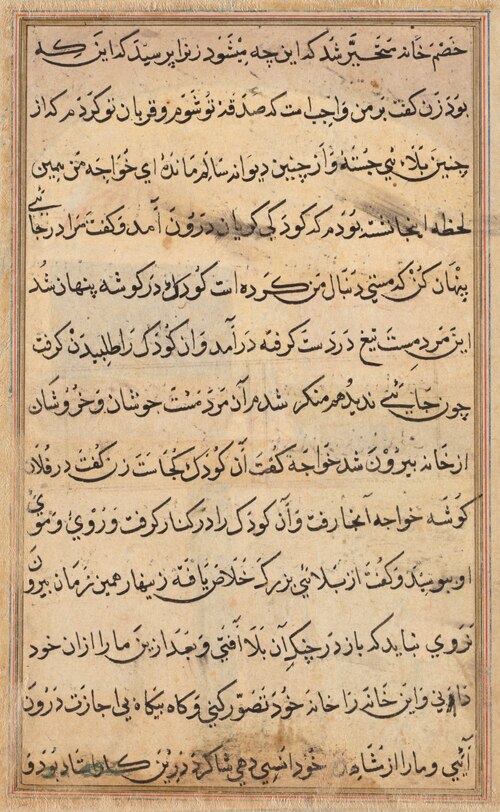 خصم خانه متحیر شد که این چه میشود زنرا پرسید که این که
بود زن کفت بر من واجب است که صدقهٔ تو شوم و قربان تو کردم که از
چنین بلائی جستهٔ و از چنین دیوانه سالم ماندهٔ ای خواجه من همین
لحظه اینجا نشسته بودم که کودکی کریان درون آمد و کفت مرا در جائی
پنهان کن که مستی دنبال من کرده است کودک در کوشه پنهان شد
این مرد مست تیغ در دست کرفته درآمد و آن کودک را طلبیدن کرفت
چون جائی ندید هم منکر شدم آن مرد مست جوشان و خروشان
از خانه بیرون شد خواجه کفت آن کودک کجاست زن کفت در فلان
کوشه خواجه آنجا رفت و آن کودک را در کنار کرفت و روی و موی
او بوسید و کفت از بلائی بزرک خلاص یافتهٔ زینهار همین زمان بیرون
نروی نباید که باز در چنک آن بلا افتی و بعد ازین ما را از آن خود
دانی و این خانه را خانه خود تصور کنی و کاه بیکاه بی اجازت درون
آئی و ما را از خود انسی دهی شاکرد درین کار استاد بود و